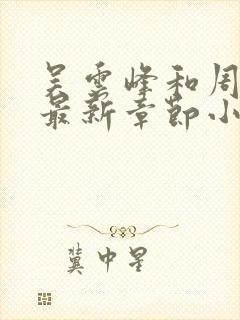 吴云峰和周
最新章节小
冀中星